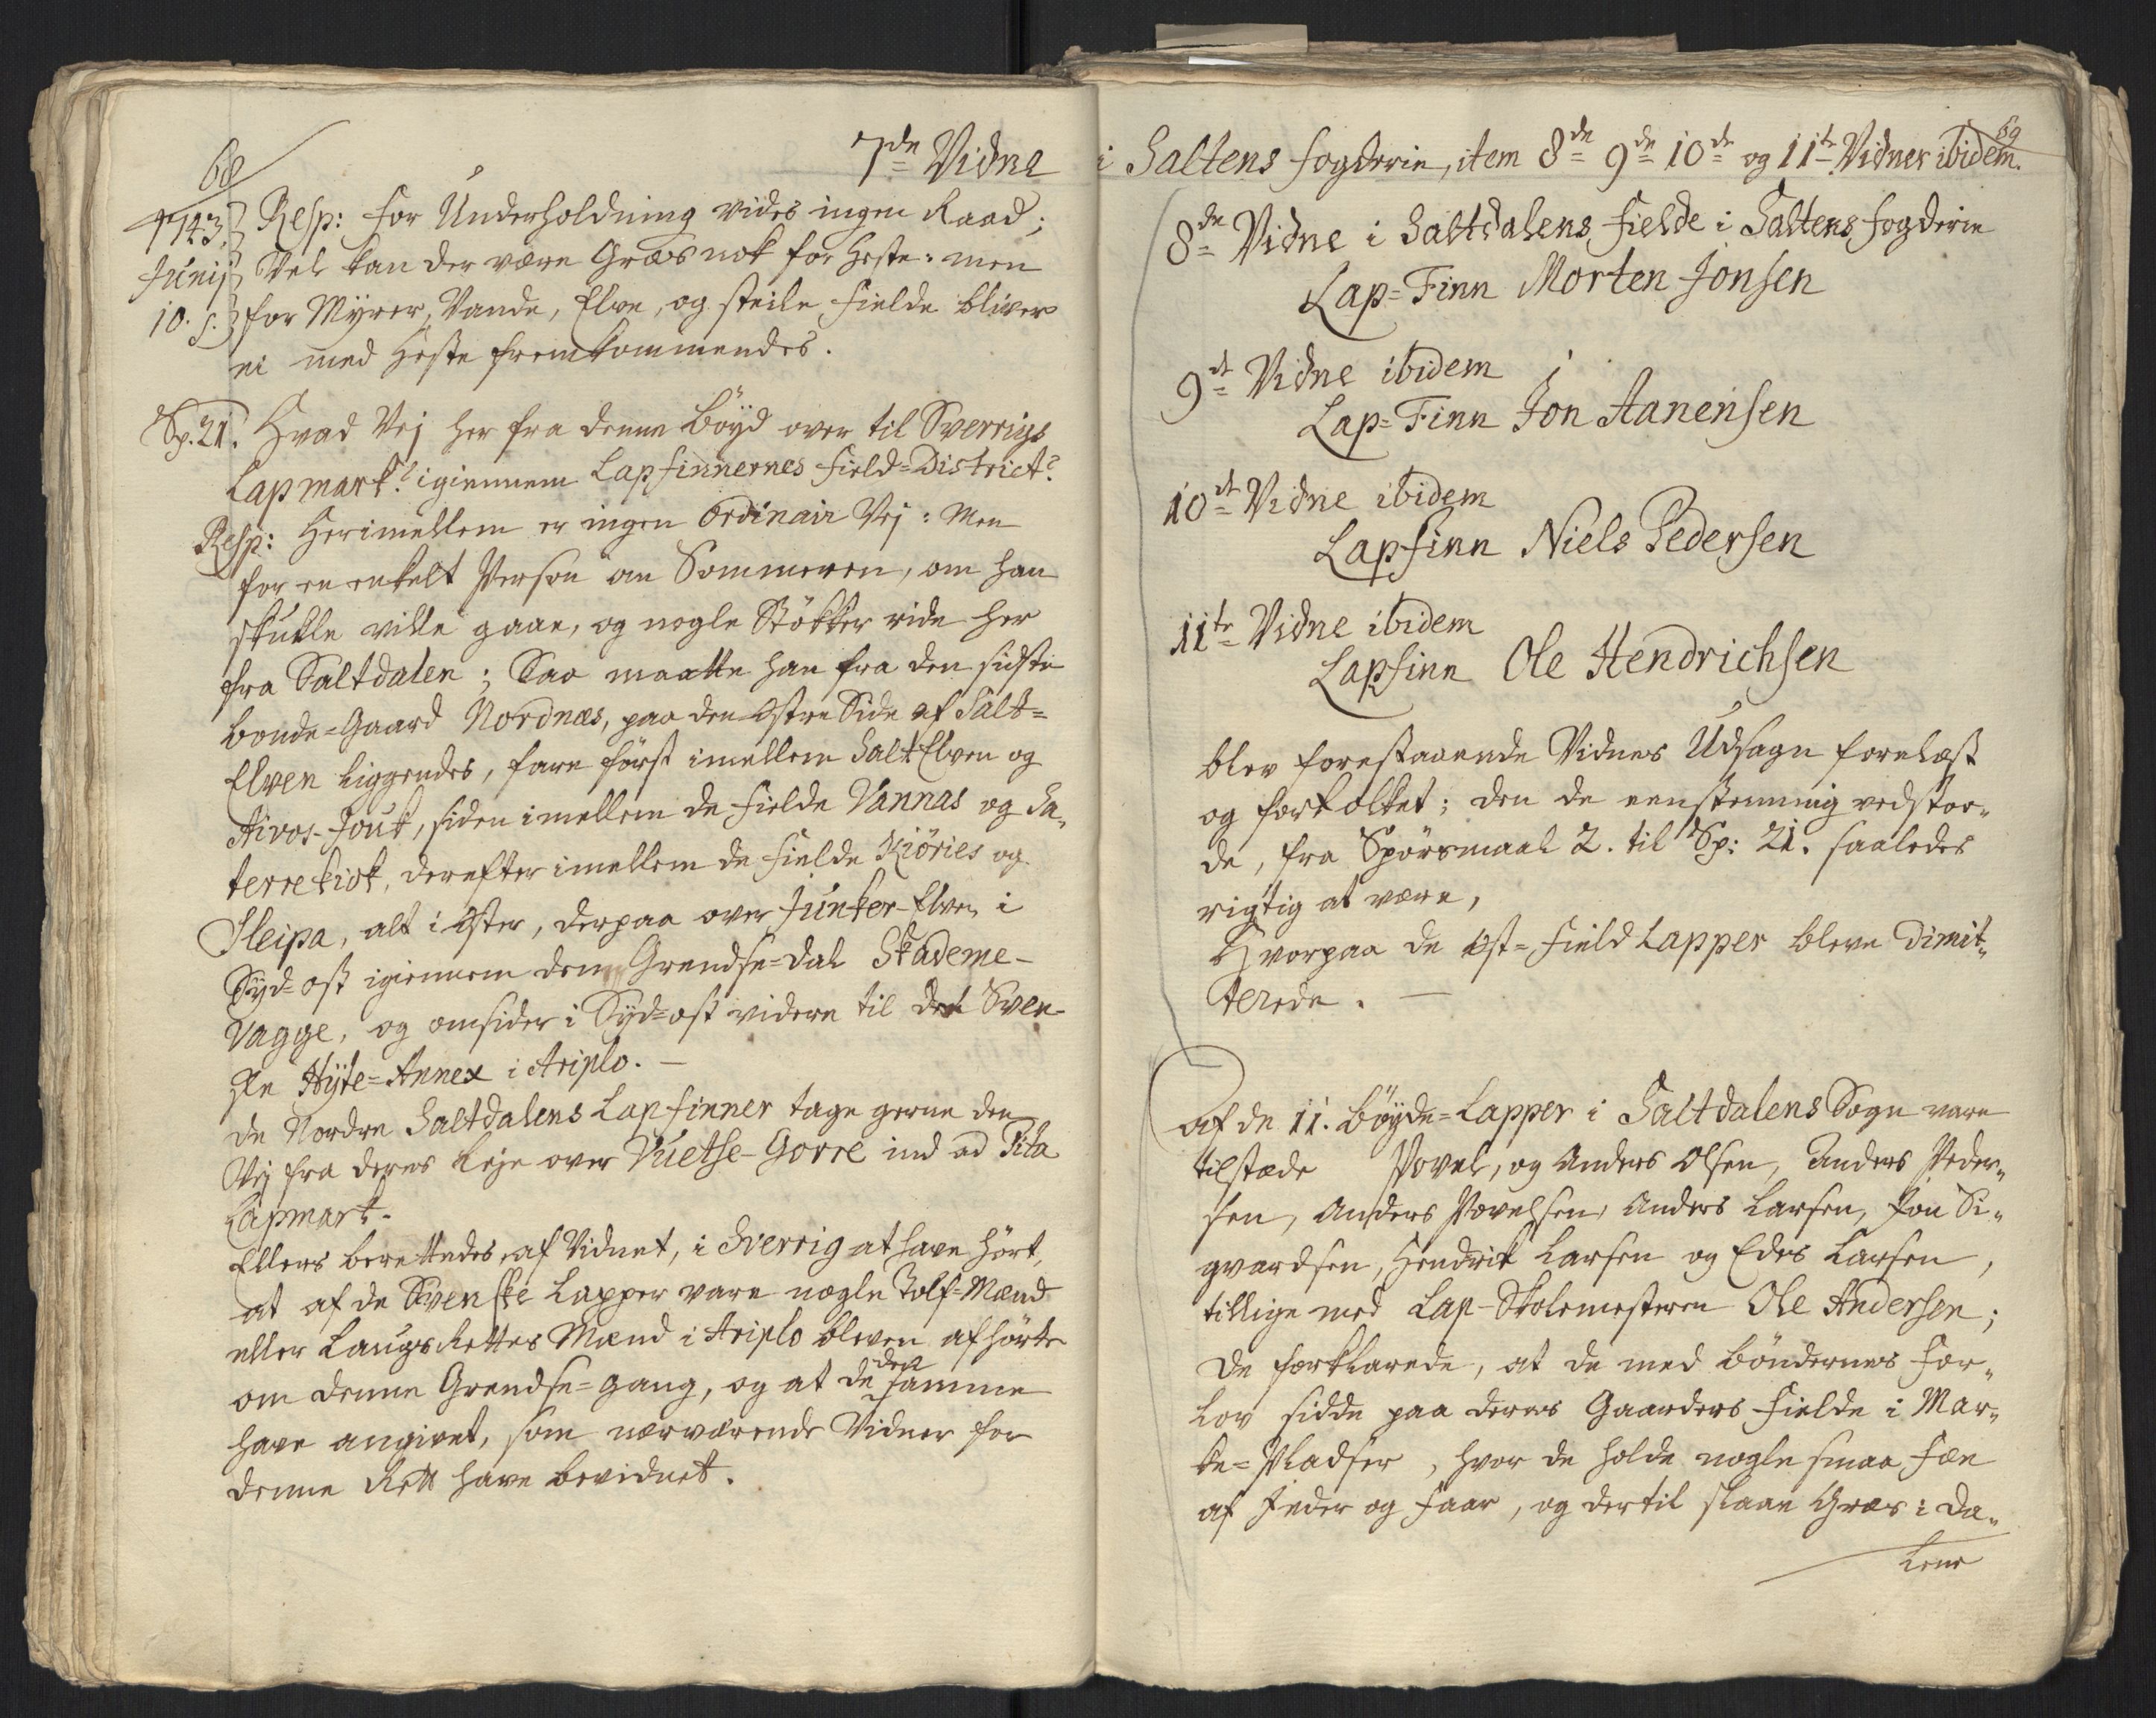 68
7de Vidne
1743.
Junij
10. s.
Resp: For Underholdning vides ingen Raad;
Vel kan der være Græs nok for Heste: men
for Myrer, Vande, Elve, og steile Fielde bliver
ei med Heste fremkommendes.
Sp. 21. Hvad Vej her fra denne Böyd over til Sverrigs
Lapmark? igiennem Lapfinnernes Field=District?
Resp: Herimellem er ingen Ordinair Vej: Men
for en enkelt Person om Sommeren, om han
skulle ville gaae, og nogle Stökker ride her
fra Saltdalen; Saa maatte han fra den sidste
Bonde=Gaard Nordnæs, paa den östre Side af Salt=
Elven liggendes, fare först imellem SaltElven og
Aivos-Jouk, siden imellem de Fielde Vannas og Sa„
terrekiok, derefter imellem de Fielde Kiöries og
Sleipa, alt i Öster, derpaa over Junker-Elven i
Syd=ost igiennem den Grendse=Dal Skademe-
Vagge, og omsider i Syd=ost videre til det Sven-
ske Hyte=Annex i Ariplo. —
De Nordre Saltdalens Lapfinner tage gerne den
Vej fra deres Leje over Vuetse-Gorre ind ad Pita
Lapmark.
Ellers berettedes af Vidnet, i Sverrig at have hört,
at af de Svenske Lapper vare nogle Tolf=Mænd
eller Laugs Rettes Mænd i Ariplo bleven afhörte
om denne Grendse=gang, og at de den samme
have angivet, som nærværende Vidner for
denne Rett have bevidnet.
69
i Saltens Fogderie, item 8de 9de 10de og 11te Vidner ibidem.
8de Vidne i Saltdalens Fielde i Saltens Fogderie
Lap=Finn Morten Jonsen
9de Vidne ibidem
Lap=Finn Jon Aanensen
10de Vidne ibidem
Lapfinn Niels Pedersen
11te Vidne ibidem
Lapfinn Ole Hendrichsen
blev forestaaende Vidnes Udsagn forelæst
og fortolket; den de eenstemmig vedstoe„
de, fra Spörsmaal 2. til Sp: 21. saaledes
rigtig at være,
Hvorpaa de Öst=Field Lapper bleve Dimit„
terede. —
Af de 11. Böyde=Lapper i Saltdalens Sogn vare
tilstæde Povel, og Anders Olsen, Anders Peder„
sen, Anders Povelsen, Anders Larsen, Jon Si„
gvardsen, Hendrik Larsen og Edes Larsen,
tillige med Lap-Skolemesteren Ole Andersen;
De forklarede, at de med Böndernes For„
lov sidde paa deres Gaarders Fielde i Mar„
ke=Pladser, hvor de holde nogle smaa Fæe
af Geder og Faar, og dertil slaae Græs i Da„
lene